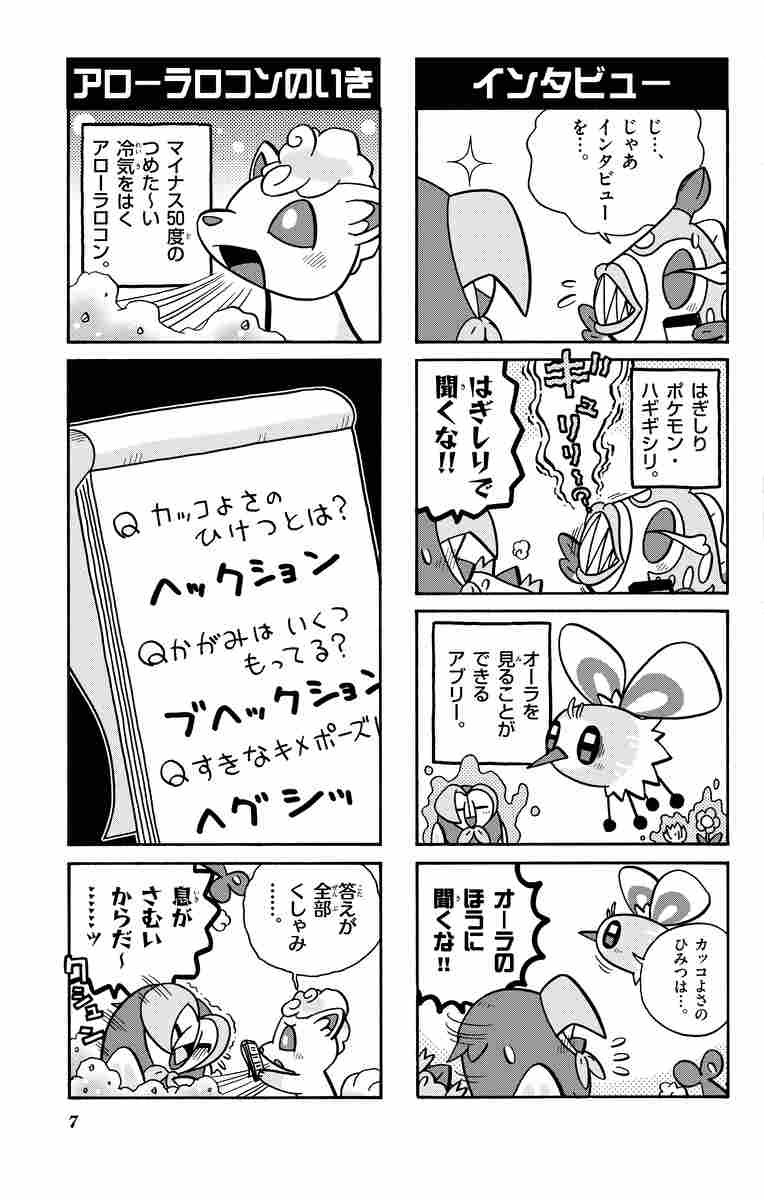 インタビュー
じ…、
じゃあ
インタビュー
を…。
はぎしり
ポケモン・
ハギギシリ。
ギュリリ〜?
はぎしりで
聞くな!!
オーラを
見ることが
できる
アブリー。
カッコよさの
ひみつは…。
オーラの
ほうに
聞くな!!
アローラロコンのいき
マイナス50度の
つめた〜い
冷気をはく
アローラロコン。
Q カッコよさの
ひけつとは?
ヘックション
Qかがみは いくつ
もってる?
ブヘックション
Qすきなキメポーズ
ヘグシッ
答えが
全部
くしゃみ
……。
息が
さむい
からだ〜
ッ
クシュン
7